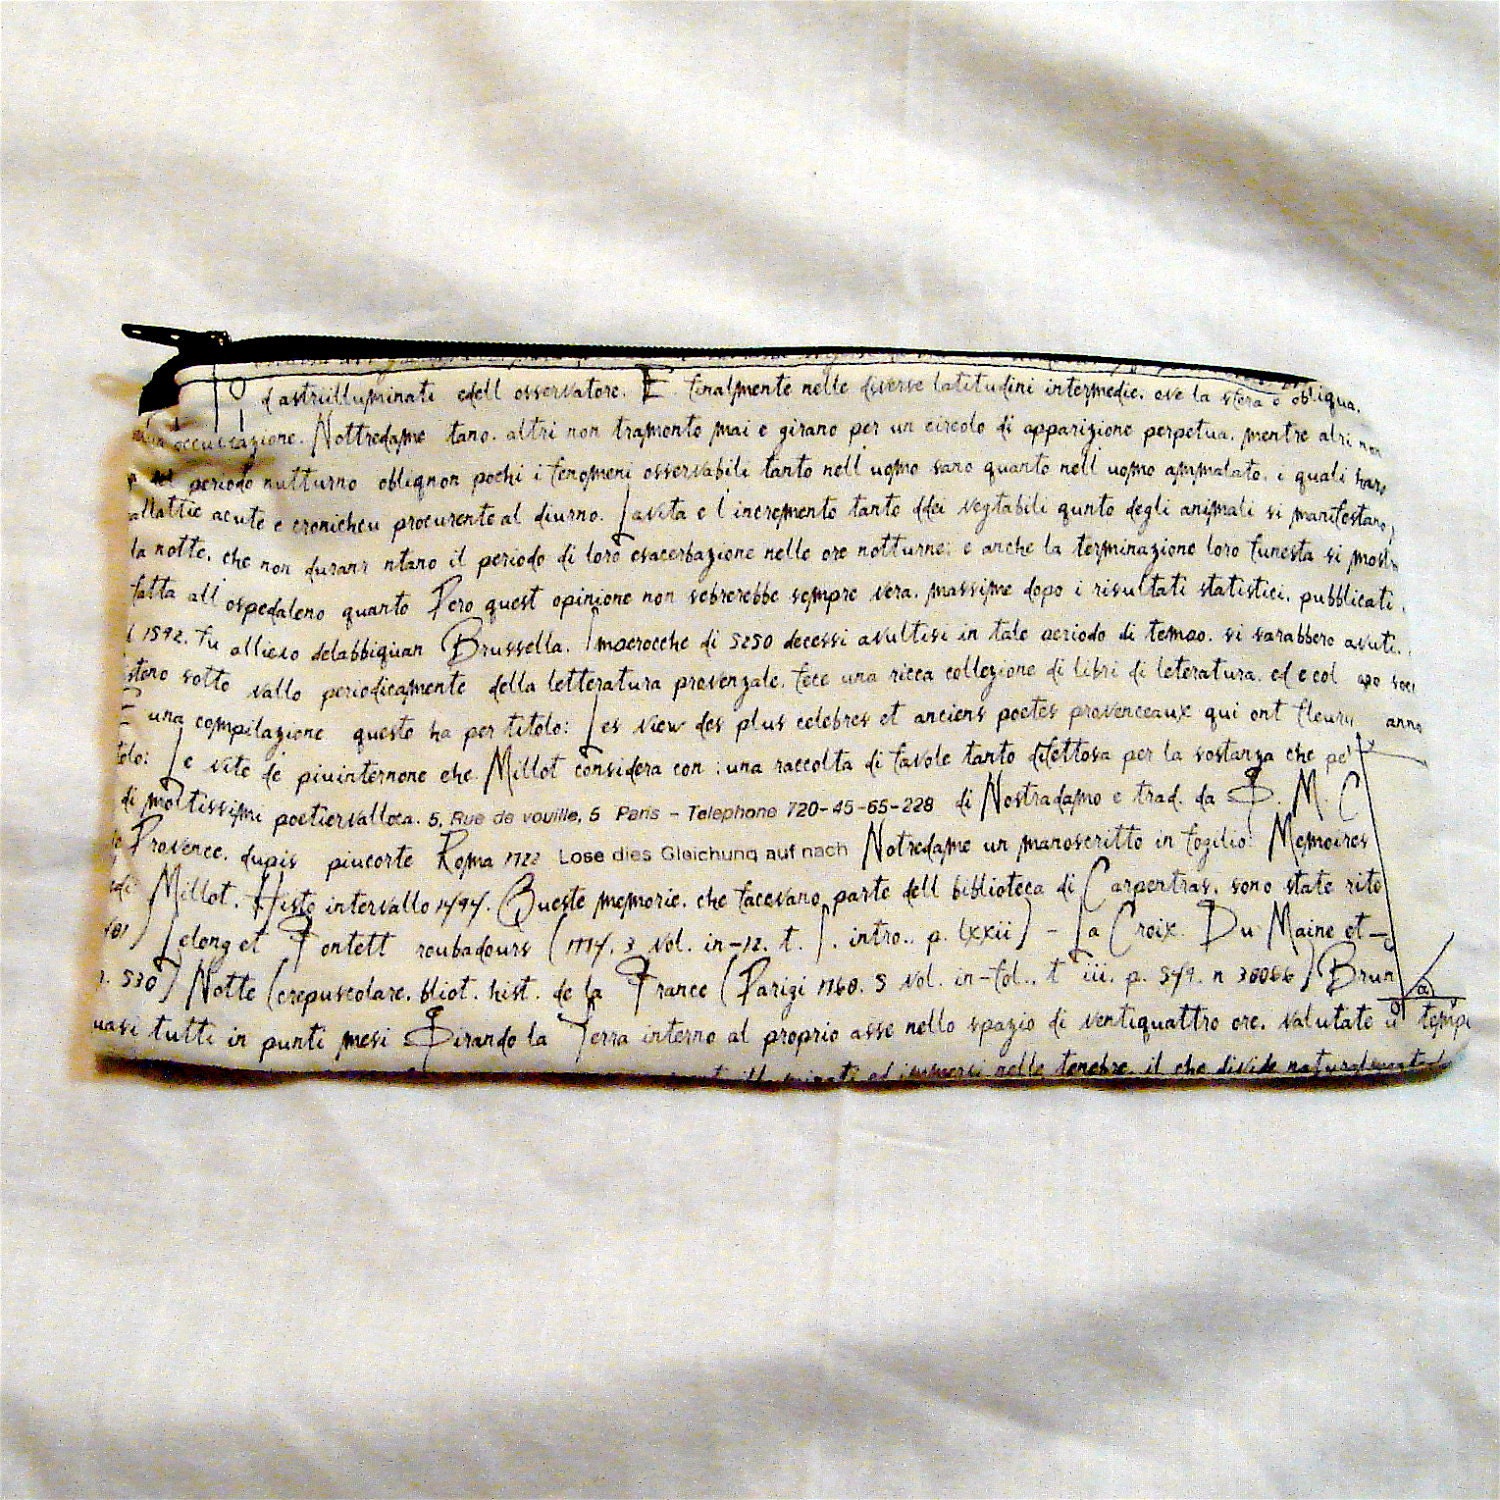 d astriilluminati edell osservatore. E finalmente nelle diverse latitudini intermedie. ove la sfera e obliqua.
occultazione. Nottredame tano. altri non tramonto mai e girano per un circolo di apparizione perpetua. mentre altri non
periodo nutturno obliqnon pochi i fenomeni osservabili tanto nell'uomo sano quanto nell'uomo ammalato. i quali hano
allattie acute e cronicheu procurente al diurno. Lavita e l'incremento tanto ddei vegtabili qunto degli animali si manifestano,
la notte. che non duranr ntano il periodo di loro esacerbazione nelle ore notturne; e anche la terminazione loro funesta si mostr
fatta all'ospedaleno quanto Pero quest opinione non sebrerebbe sempre vera. massime dopo i risultati statistici. pubblicati.
1592. fu allievo delabbiquan Brussella. Imperocche di 5250 decessi avultisi in tale periodo di tempo. si sarabbero avuti.
steno sotto vallo periodicamente della letteratura provenzale. fece una ricca collezione di libri di leteratura. ed e col soci
E una compilazione questo ha per titolo: Les view des plus celebres et anciens poetes provenceaux qui ont fleury anno
tolo: Le vite de piuinternone che Millot considera con : una raccolta di favole tanto difettosa per la sostanza che pe'
di moltissimi poetiervalloca. 5, Rue de vouille, 5 Paris - Telephone 720-45-65-228 di Nostradamo e trad. da G. M. C
Provence. dupis piucorte Roma 1722 Lose dies Gleichung auf nach Notredame un manoscritto in foglio: Memoires
Millot. Histo intervallo 1494. Queste memorie. che facevano parte dell biblioteca di Carpentras. sono state rite
Lelong et Fontett roubadours (1774. 3 vol. in-12. t. I. intro.. p. lxxii) - La Croix. Du Maine et
530) Notte (crepuscolare. bliot. hist. de la France (Parigi 1768. 5 vol. in-fol.. t iii. p. 549. n 38066) Brun
uasi tutti in punti mesi Girando la Terra interno al proprio asse nello spazio di ventiquattro ore. valutate tempo
illuminati ed immersi nelle tenebre. il che divide naturalmente